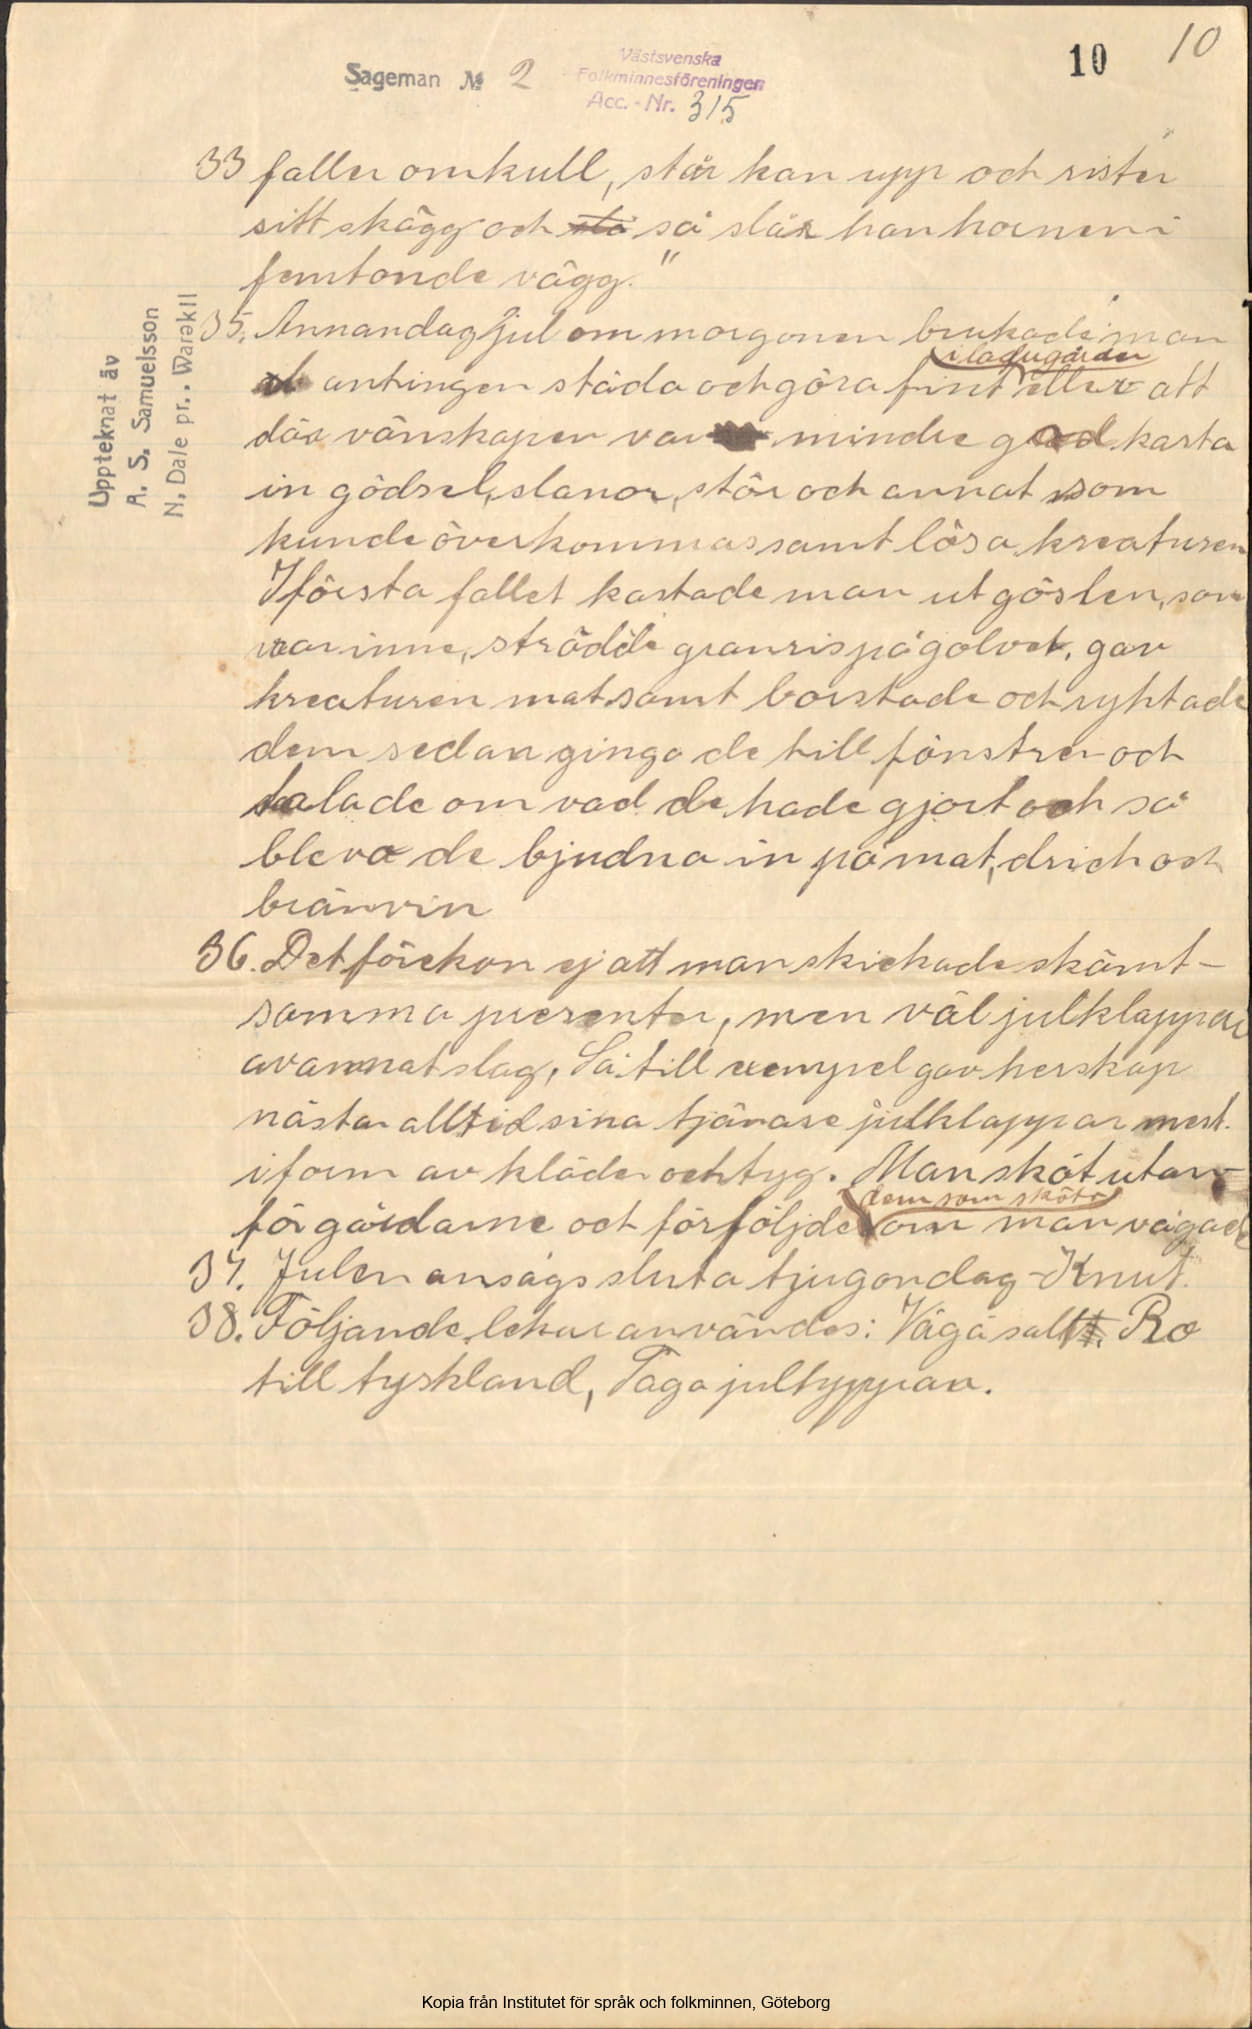 10
10
Sageman № 2
Västsvenska
Folkminnesföreningen
Acc. - Nr. 315
Uppteknat äv
A. S. Samuelsson
N. Dale pr. Warekil
33 faller omkull, står han upp och rister
sitt skägg och slå så slår han hornen i
femtonde vägg."
35. Annandag jul om morgonen brukade man
i ladugården
antingen städa och göra fint eller att
där vänskapen var mindre god kasta
in gödsel, slanor, stör och annat som
kunde överkommas samt lösa kreaturen
I första fallet kastade man ut göslen, som
var inne, strödde granris på golvet, gav
kreaturen mat samt borstade och ryhtade
dem sedan gingo de till fönstrer och
talade om vad de hade gjort och så
blevo de bjudna in på mat, drich och
bränvin
36. Det förekon ej att man skickade skämt-
samma presenter, men väl julklappar
av annat slag, Så till exempel gav herskap
nästan alltid sina tjänare julklappar mest.
i form av kläder och tyg. Man sköt utan-
dem som sköto
för gårdarne och förföljde om man vågade
37. Julen ansågs sluta tjugondag-Knut.
38. Följande lekar användes: Väga salt. Ro
till tyskland, Taga jultyppan.
Kopia från Institutet för språk och folkminnen, Göteborg